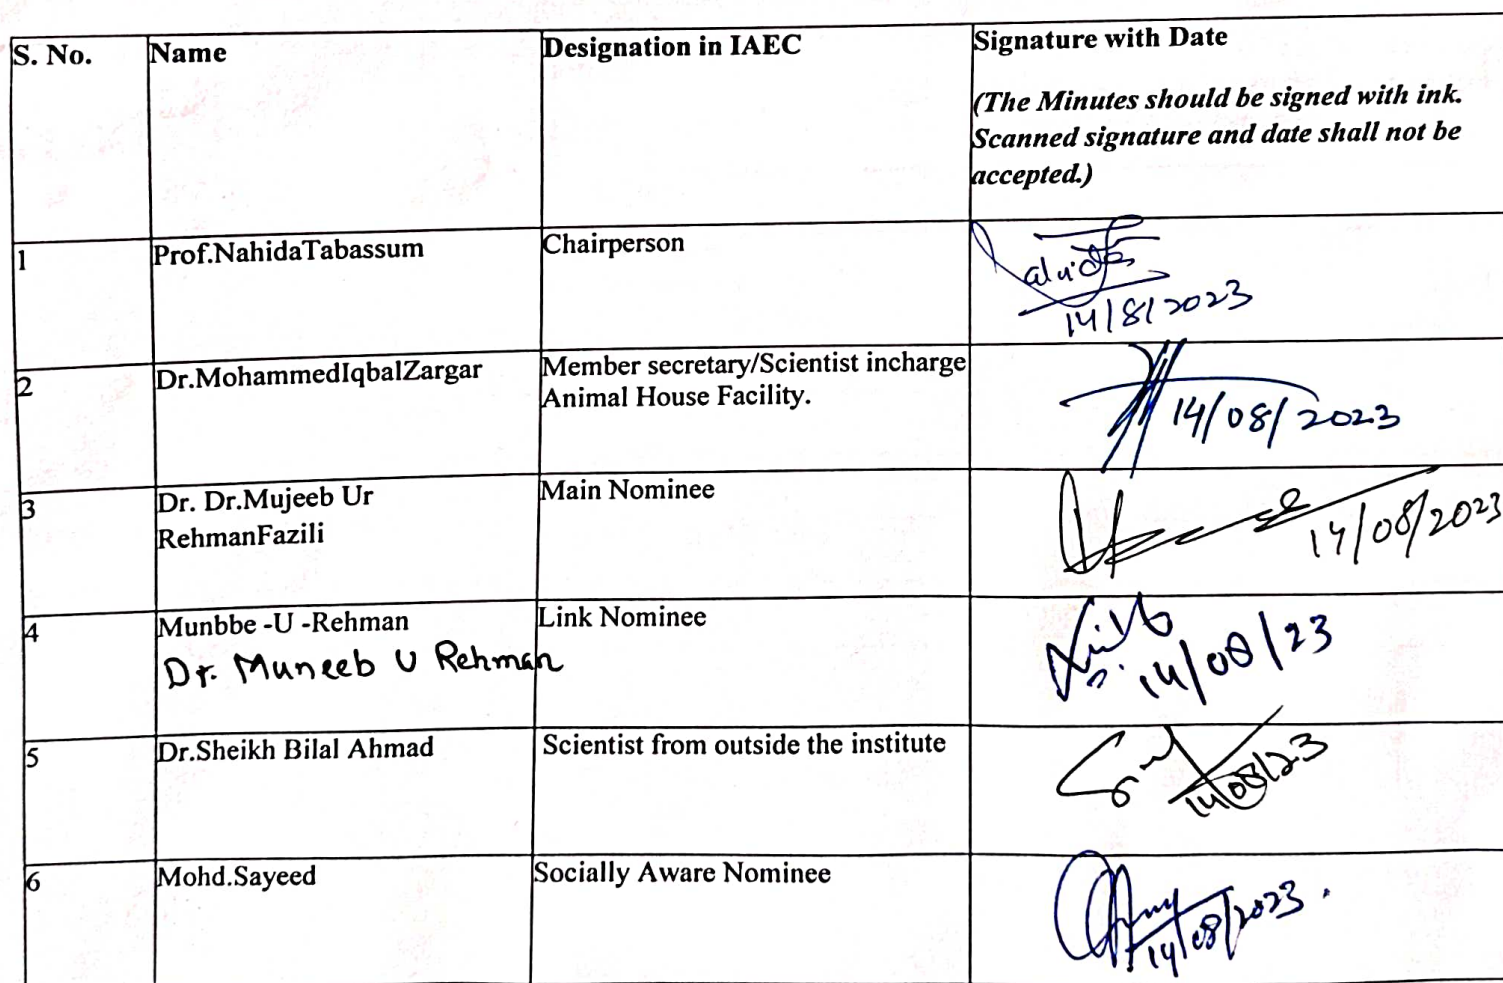 S. No. Name Designation in IAEC Signature with Date
(The Minutes should be signed with ink.
Scanned signature and date shall not be
accepted.)
1 Prof.NahidaTabassum Chairperson
14/8/2023
2 Dr.MohammedIqbalZargar Member secretary/Scientist incharge
Animal House Facility.
14/08/2023
3 Dr. Dr.Mujeeb Ur Main Nominee
RehmanFazili
14/08/2023
4 Munbbe -U -Rehman Link Nominee
Dr. Muneeb U Rehman
14/08/23
5 Dr.Sheikh Bilal Ahmad Scientist from outside the institute
14/08/23
6 Mohd.Sayeed Socially Aware Nominee
14/08/2023.